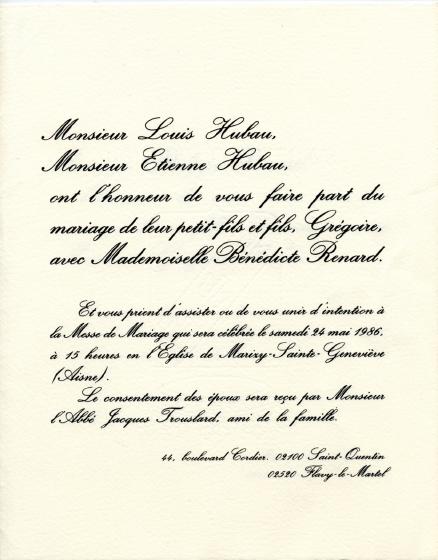 Monsieur Louis Hubau,
Monsieur Etienne Hubau,
ont l'honneur de vous faire part du
mariage de leur petit-fils et fils, Grégoire,
avec Mademoiselle Bénédicte Renard.
Et vous prient d'assister ou de vous unir d'intention à
la Messe de Mariage qui sera célébrée le samedi 24 mai 1986,
à 15 heures en l'Eglise de Marizy-Sainte-Geneviève
(Aisne).
Le consentement des époux sera reçu par Monsieur
l'Abbé Jacques Trouslard, ami de la famille.
44, boulevard Cordier. 02100 Saint-Quentin
02520 Flavy-le-Martel